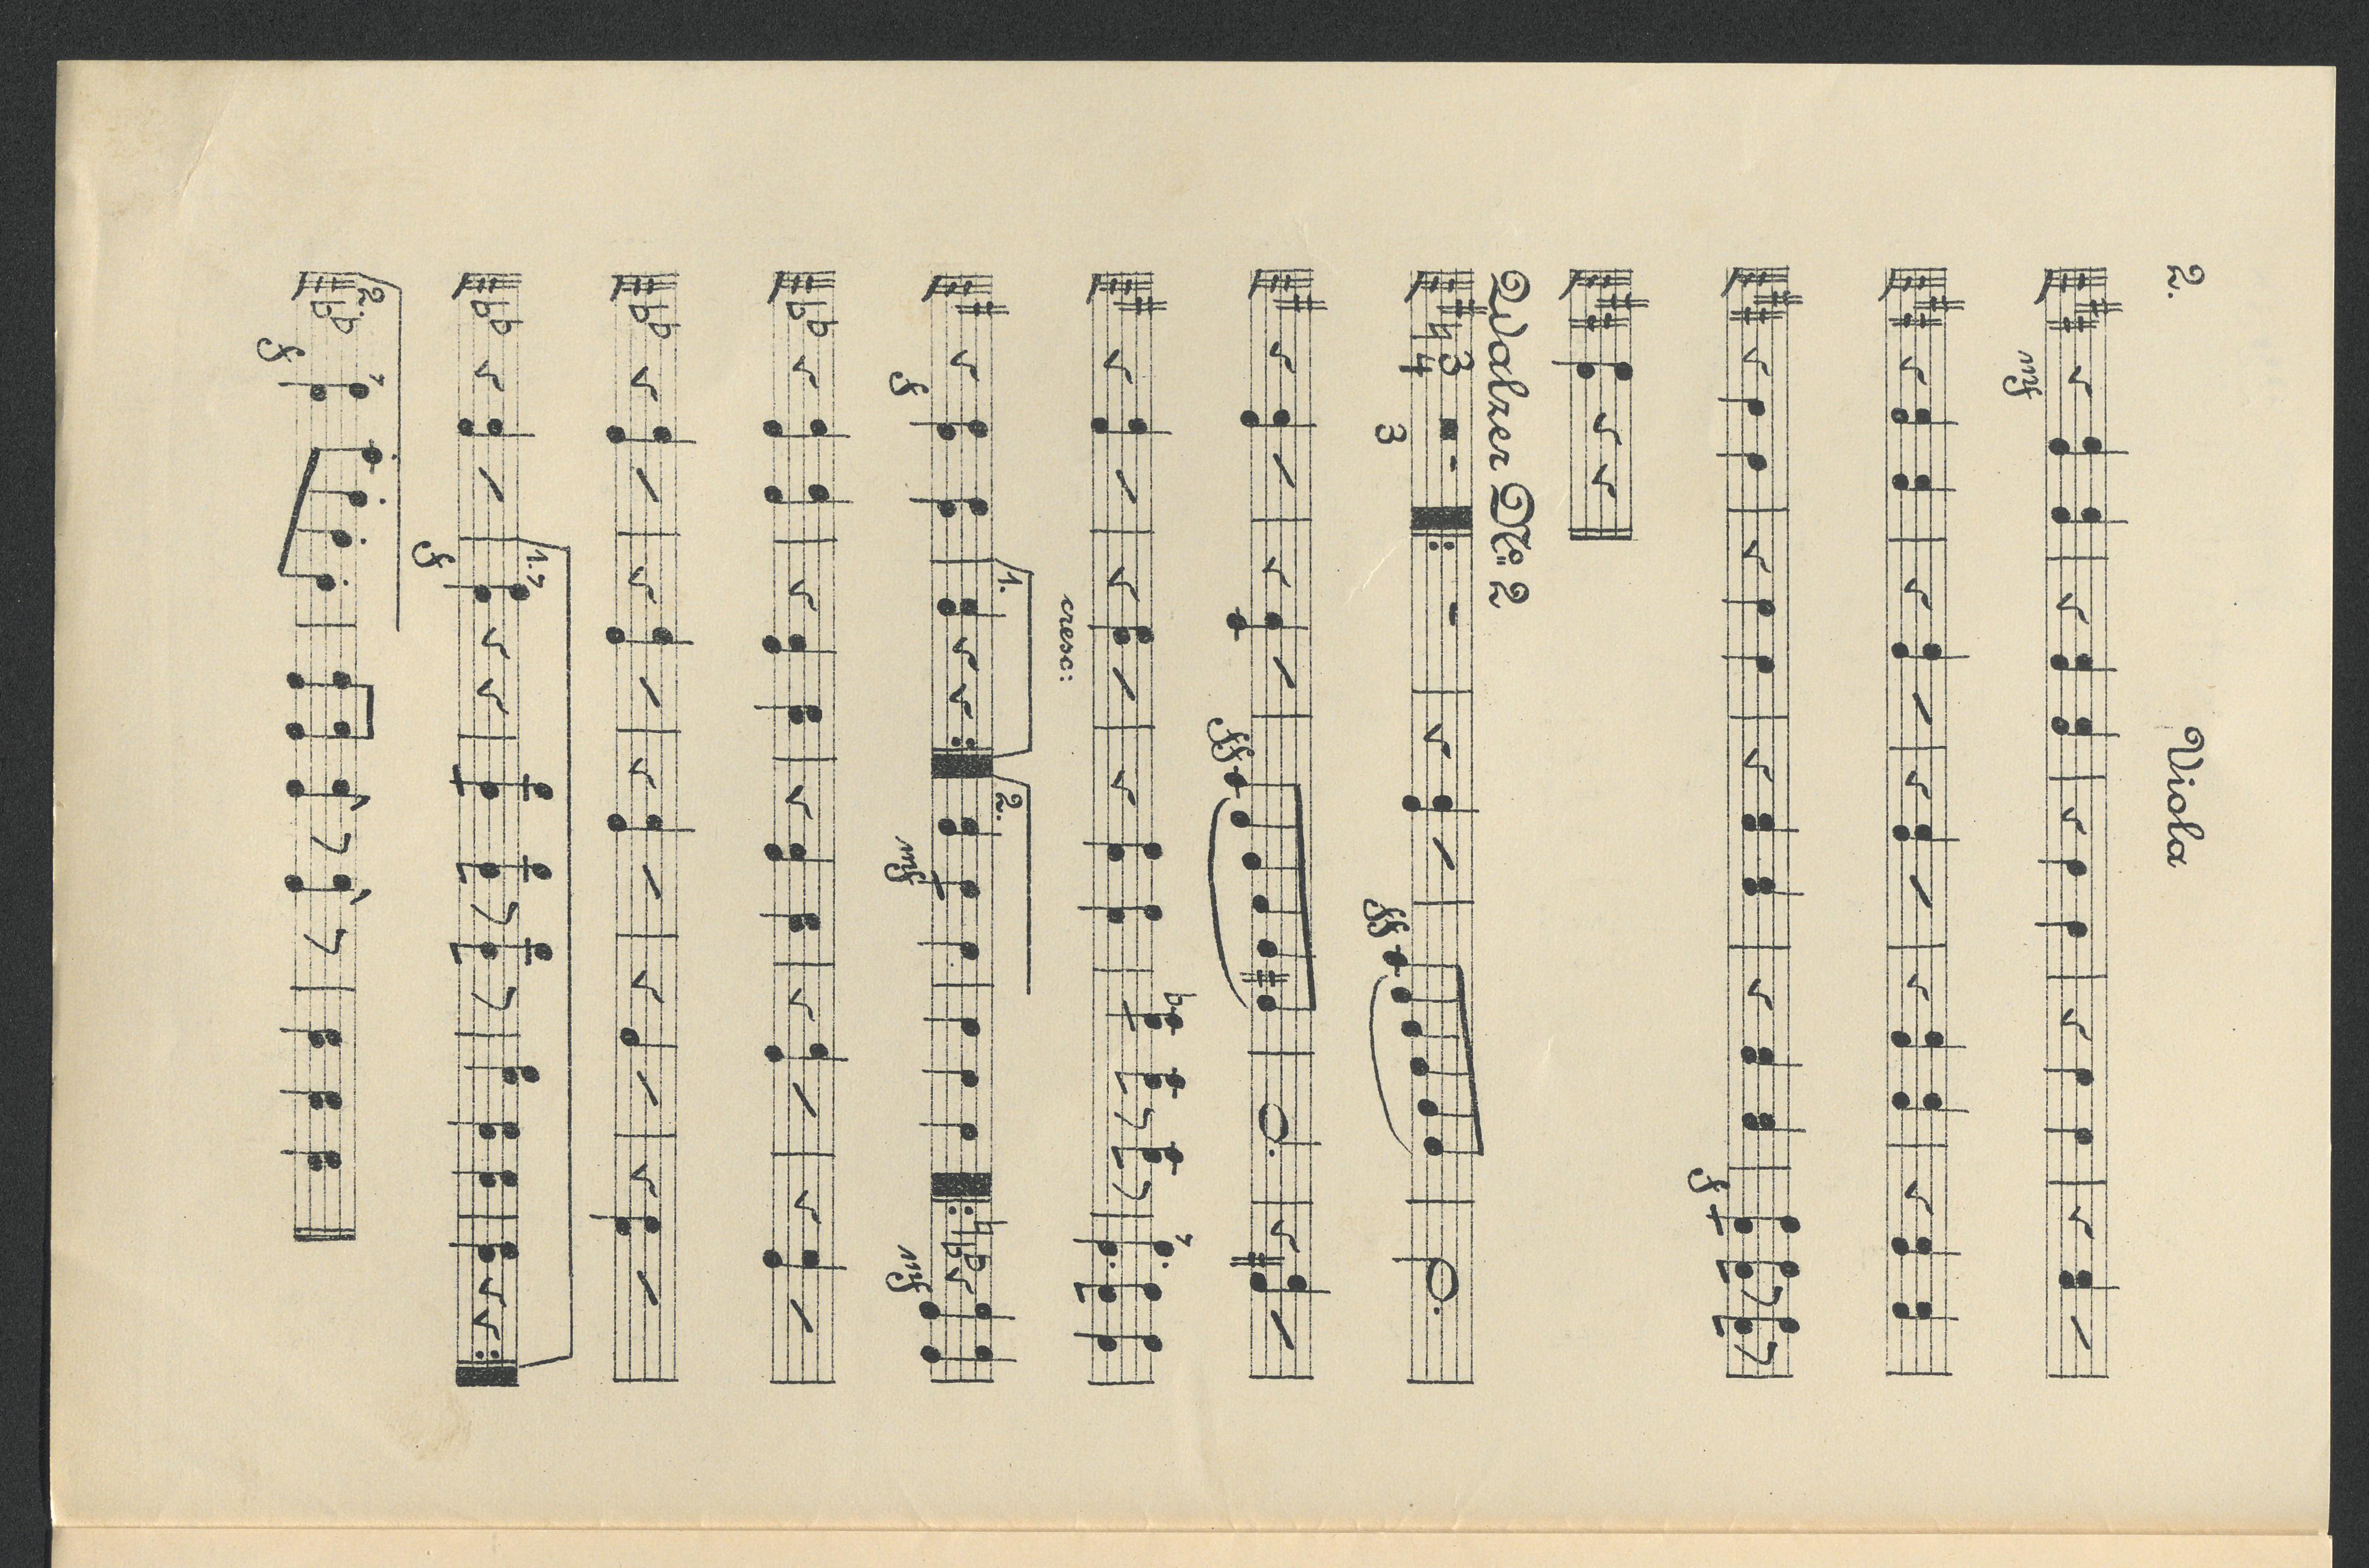 2. Viola
mf
f
Walzer No. 2
3
4
3
ff
ff
cresc:
f 1. 2. mf mf
f 1.
2.
f